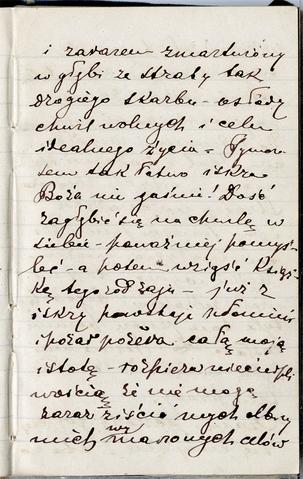 i zarazem zmartwiony
w głębi ze straty tak
drogiego skarbu - osłody
chwil wolnych i celu
idealnego życia - Tymcza-
sem tak łatwo iskra
Boża nie gaśnie! Dość
zagłębić się na chwilę w
siebie - poważniej pomyś-
leć - a potem wziąść książ-
kę tego rodzaju - już z
iskry powstaje płomień
i pożar pożera całą moją
istotę - rozpiera niecierpli
wością, że nie mogę
zaraz ziścić mych olbrzy
mich wymarzonych celów